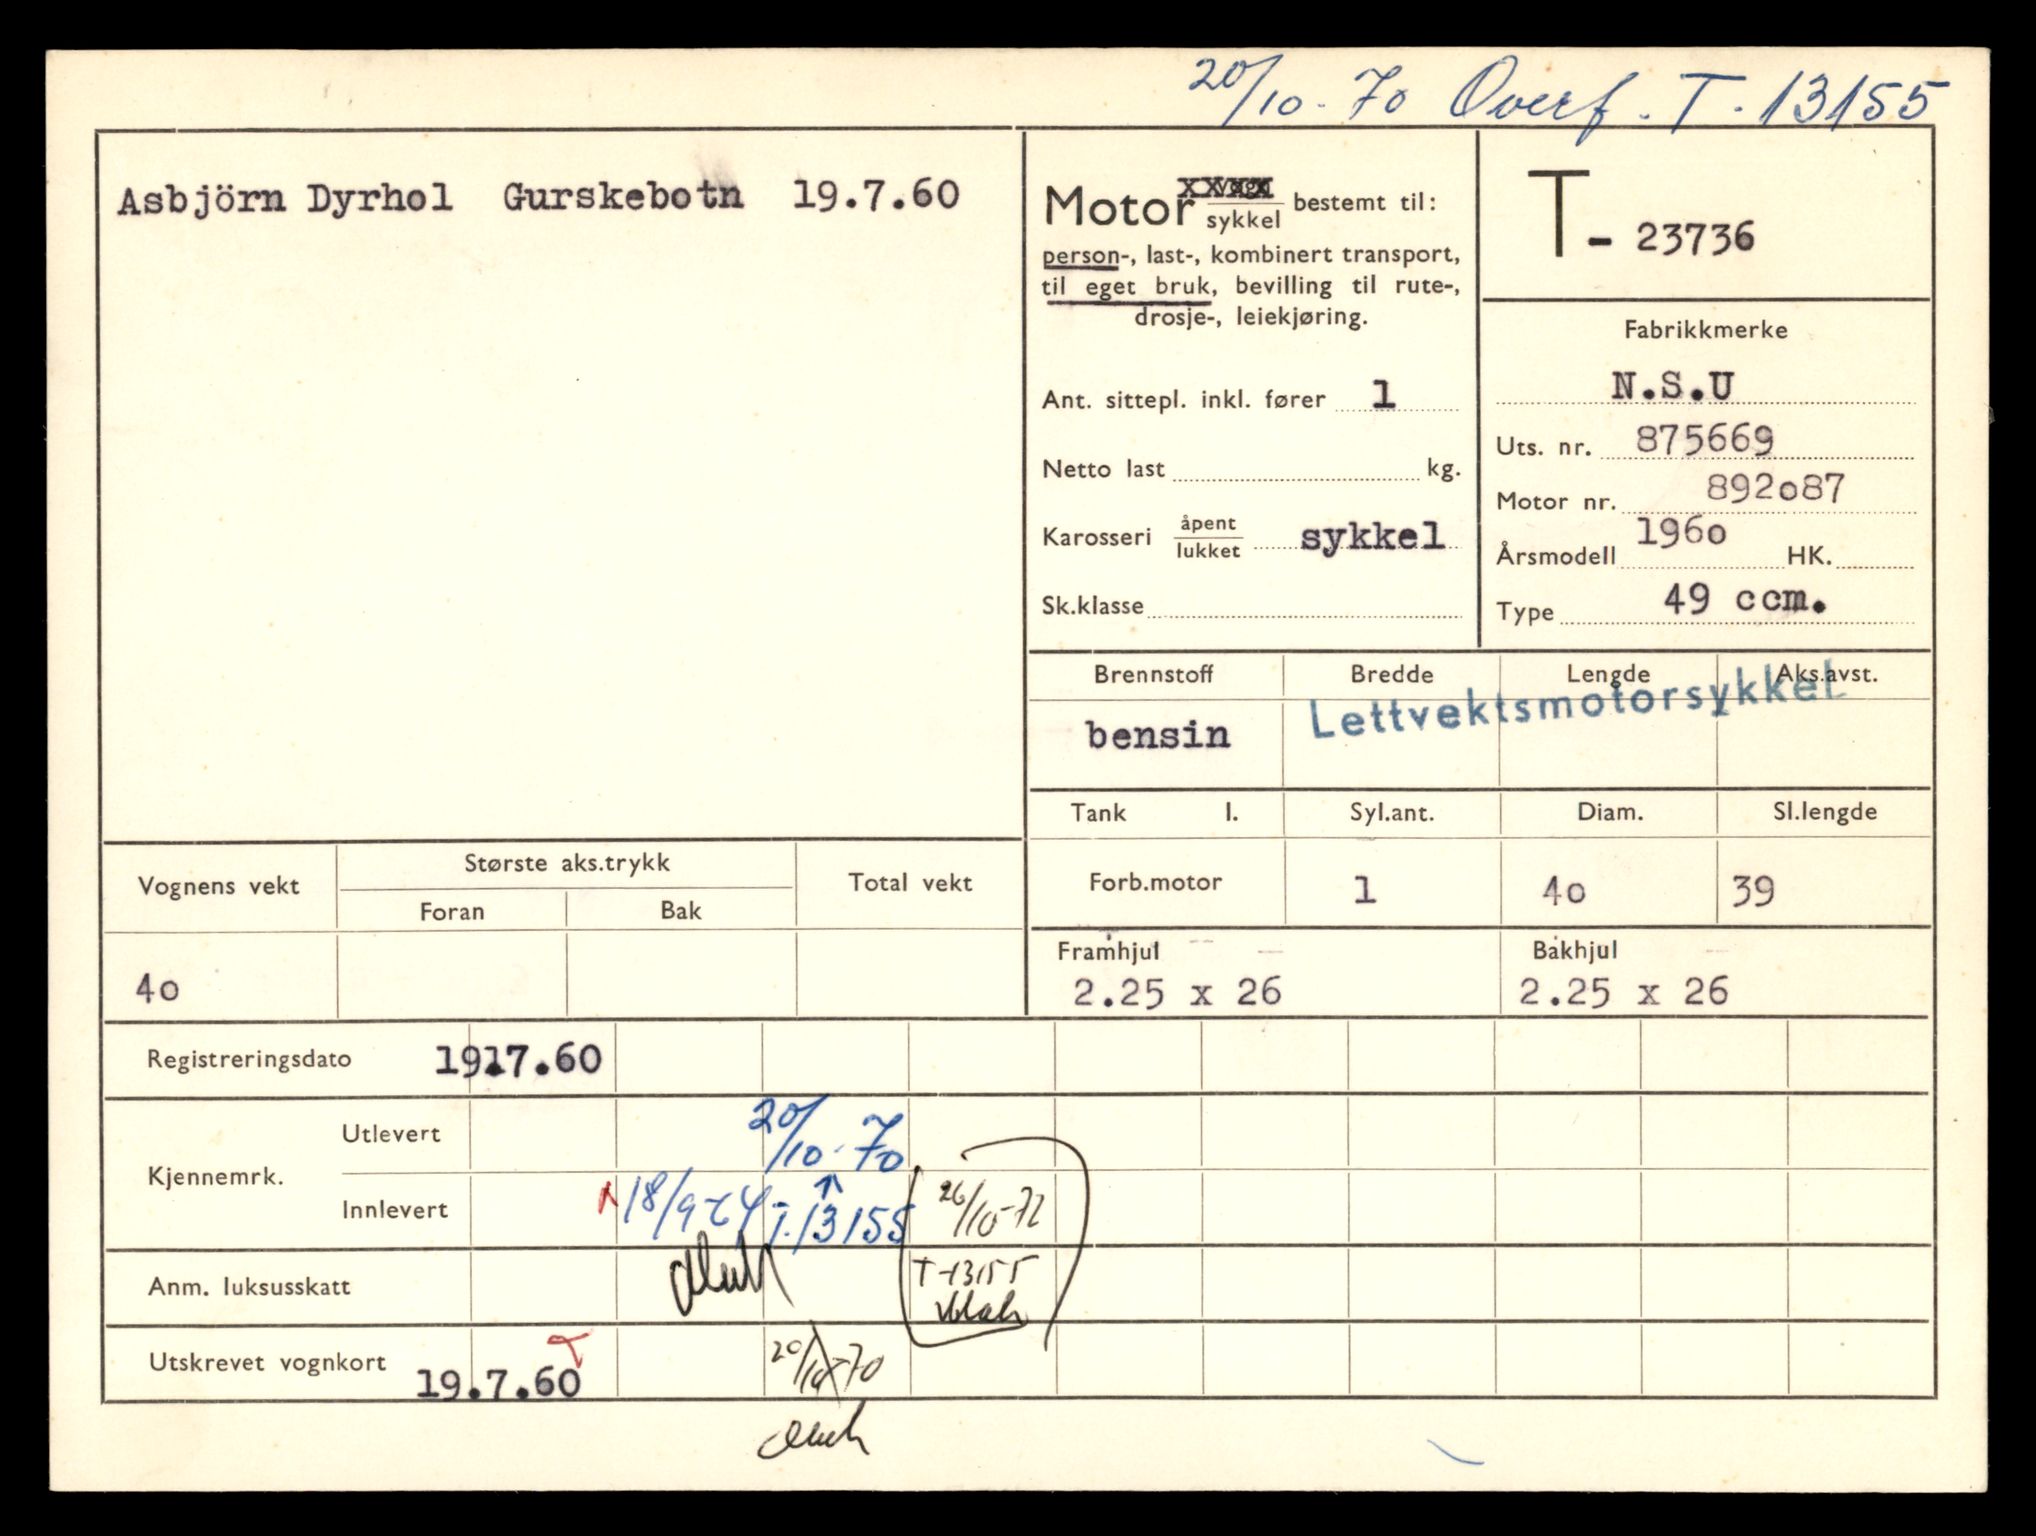 20/10-70 Overf. T-13155
Asbjörn Dyrhol Gurskebotn 19.7.60
Motor vogn sykkel bestemt til:
person-, last-, kombinert transport,
til eget bruk, bevilling til rute-,
drosje-, leiekjøring.
Ant. sittepl. inkl. fører 1
Netto last kg.
Karosseri åpent lukket sykkel
Sk.klasse
T- 23736
Fabrikkmerke
N.S.U
Uts. nr. 875669
Motor nr. 892o87
Årsmodell 196o HK.
Type 49 ccm.
Brennstoff Bredde Lengde Aks.avst.
bensin Lettvektsmotorsykkel
Tank l. Syl.ant. Diam. Sl.lengde
Forb.motor 1 4o 39
Framhjul Bakhjul
2.25 x 26 2.25 x 26
Vognens vekt Største aks.trykk Total vekt
Foran Bak
4o
Registreringsdato 19.7.60
Kjennemrk.
Utlevert 20/10-70
Innlevert 18/9-64 T-13155 26/10-72
Anm. luksusskatt T-13155
Utskrevet vognkort 19.7.60 20/10-70